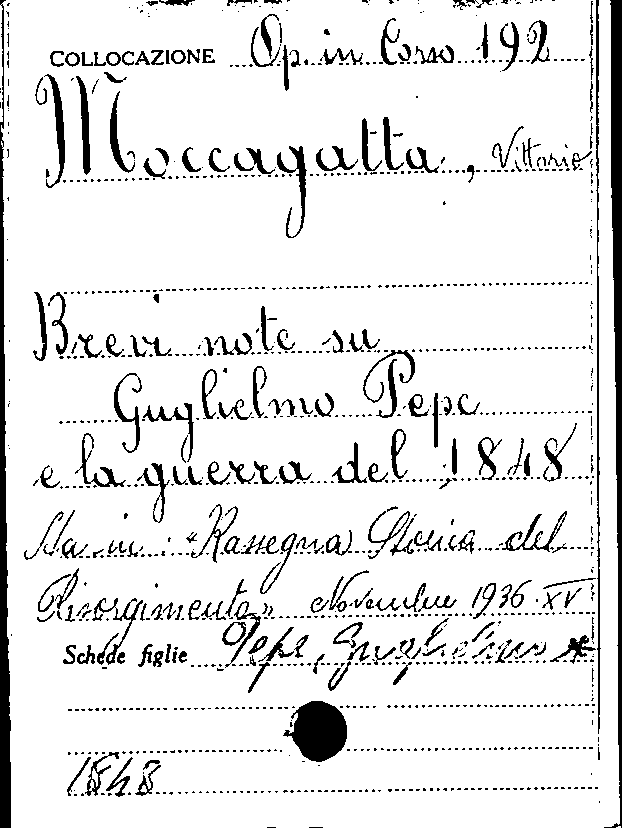 COLLOCAZIONE Op. in Corso 192
Moccagatta, Vittorio
Brevi note su
Guglielmo Pepe
e la guerra del 1848
Sta in: "Rassegna Storica del
Risorgimento" Novembre 1936-XV
Schede figlie Pepe, Guglielmo *
1848